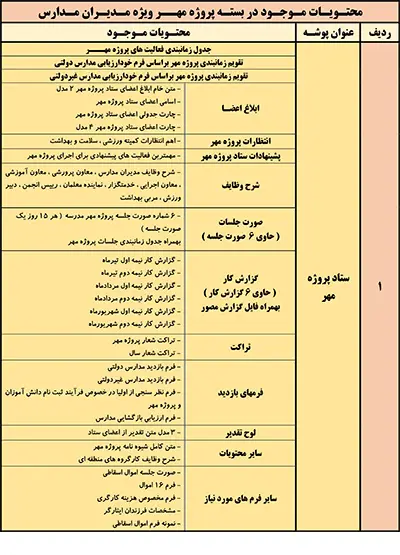 محتویات موجود در بسته پروژه مهر ویژه مدیران مدارس
ردیف
عنوان پوشه
محتویات موجود
۱
ستاد پروژه
مهر
جدول زمانبندی فعالیت های پروژه مهر
تقویم زمانبندی پروژه مهر براساس فرم خودارزیابی مدارس دولتی
تقویم زمانبندی پروژه مهر براساس فرم خودارزیابی مدارس غیردولتی
ابلاغ اعضا
- متن خام ابلاغ اعضای ستاد پروژه مهر ۲ مدل
- اسامی اعضای ستاد پروژه مهر
- چارت جدولی اعضای ستاد پروژه مهر
- چارت اعضای ستاد پروژه مهر ۴ مدل
انتظارات پروژه مهر
- اهم انتظارات کمیته ورزشی ، سلامت و بهداشت
پیشنهادات ستاد پروژه مهر
- مهمترین فعالیت های پیشنهادی برای اجرای پروژه مهر
شرح وظایف
- شرح وظایف مدیران مدارس ، معاون پرورشی ، معاون آموزشی
، معاون اجرایی ، خدمتگزار ، نماینده معلمان ، رییس انجمن ، دبیر
ورزش ، مربی بهداشت
صورت جلسات
( حاوی ۶ صورت جلسه )
- ۶ شماره صورت جلسه پروژه مهر مدرسه ( هر ۱۵ روز یک
صورت جلسه )
بهمراه جدول زمانبندی جلسات پروژه مهر
گزارش کار
( حاوی ۶ گزارش کار )
بهمراه فایل گزارش مصور
- گزارش کار نیمه اول تیرماه
- گزارش کار نیمه دوم تیرماه
- گزارش کار نیمه اول مردادماه
- گزارش کار نیمه دوم مردادماه
- گزارش کار نیمه اول شهریورماه
- گزارش کار نیمه دوم شهریورماه
تراکت
- تراکت شعار پروژه مهر
- تراکت شعار سال
فرمهای بازدید
- فرم بازدید مدارس دولتی
- فرم بازدید مدارس غیردولتی
- فرم نظر سنجی از اولیا در خصوص فرآیند ثبت نام دانش آموزان
و پروژه مهر
- فرم ارزیابی بازگشایی مدارس
لوح تقدیر
- ۳ مدل متن تقدیر از اعضای ستاد
سایر محتویات
- متن کامل شیوه نامه پروژه مهر
- شرح وظایف کارگروه های منطقه ای
سایر فرم های مورد نیاز
- صورت جلسه اموال اسقاطی
- فرم ۱۶ اموال
- فرم مخصوص هزینه کارگری
- مشخصات فرزندان ایثارگر
- نمونه فرم اموال اسقاطی